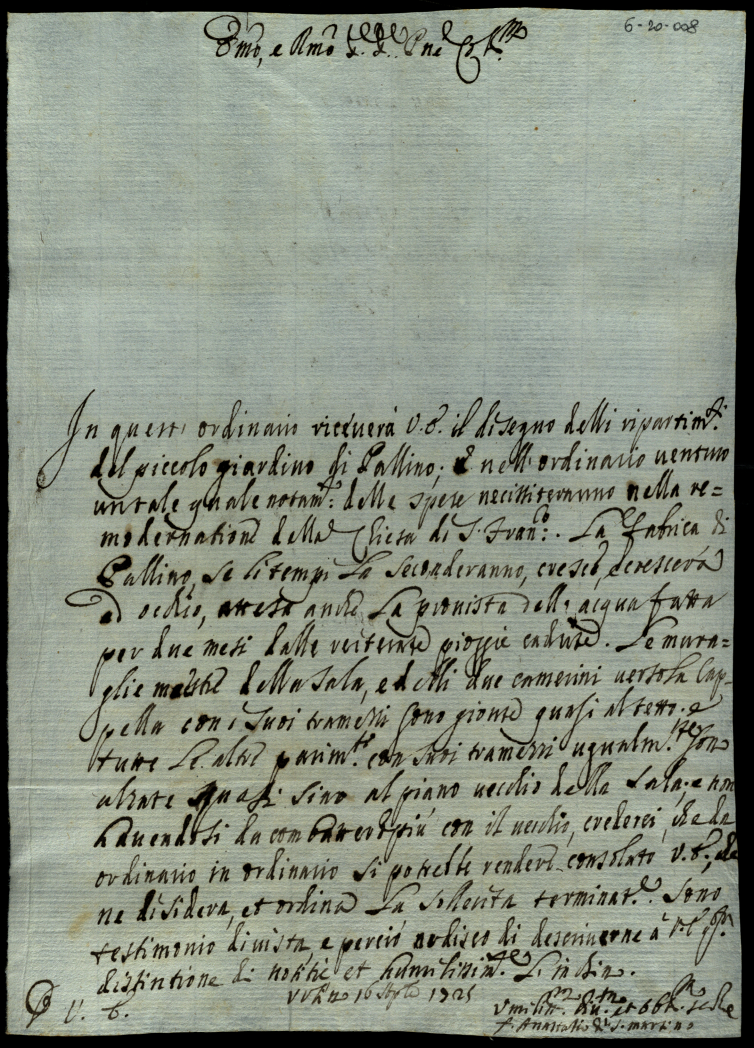 6-20-008
Emo, e Rmo Sig.r Sig.r Pne
In questo ordinario riceuerà V. E. il disegno delli ripartim.ti
del piccolo giardino di Pallino; e nell'ordinario uenturo
un tale quale notam.to delle spese necessiteranno nella re=
modernatione della Chiesa di S. Fran.co. La fabrica di
Pallino, se li tempi la seconderanno, cresce, e crescerà
ad occhio, attesa anche la prouista dell'acqua fatta
per due mesi dalle reiterate pioggie cadute. Le mura=
glie maestre della Sala, e delli due camerini uerso la Cap=
pella con i suoi tramezzi sono gionte quasi al tetto: e
tutte le altre parim.te con suoi tramezzi ugualm.te son
alzate quasi sino al piano uecchio della Sala; e non
hauendosi da combattere più con il uecchio, crederei, che da
ordinario in ordinario si potrebbe rendere consolato V. E., che
ne desidera, et ordina la sollecita terminat.e. Sono
testimonio di uista e perciò ardisco di descriuerne à V. E.
distintione di notitie et humilissim.te l'inchino.
V. E.
16 1725
Umiliss.o et obb.
f. Anastasio di S. Martino